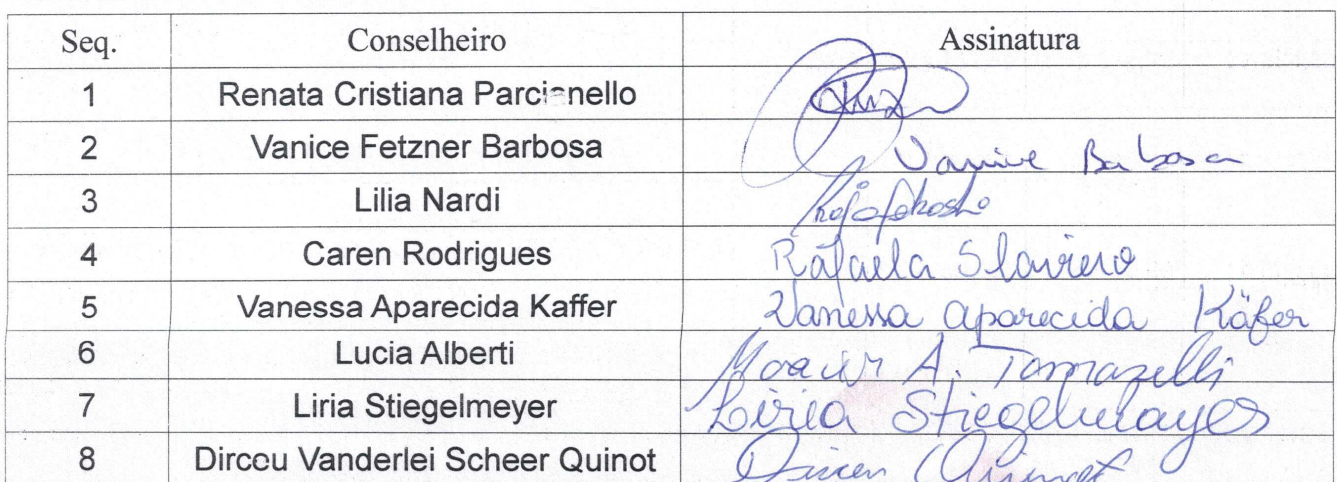 Seq. Conselheiro Assinatura
1 Renata Cristiana Parcianello
2 Vanice Fetzner Barbosa Vanice Barbosa
3 Lilia Nardi
4 Caren Rodrigues Rafaela Slaviero
5 Vanessa Aparecida Kaffer Vanessa Aparecida Käfer
6 Lucia Alberti Moacir A. Tomazelli
7 Liria Stiegelmeyer Liria Stiegelmayer
8 Dirceu Vanderlei Scheer Quinot Dirceu Quinot